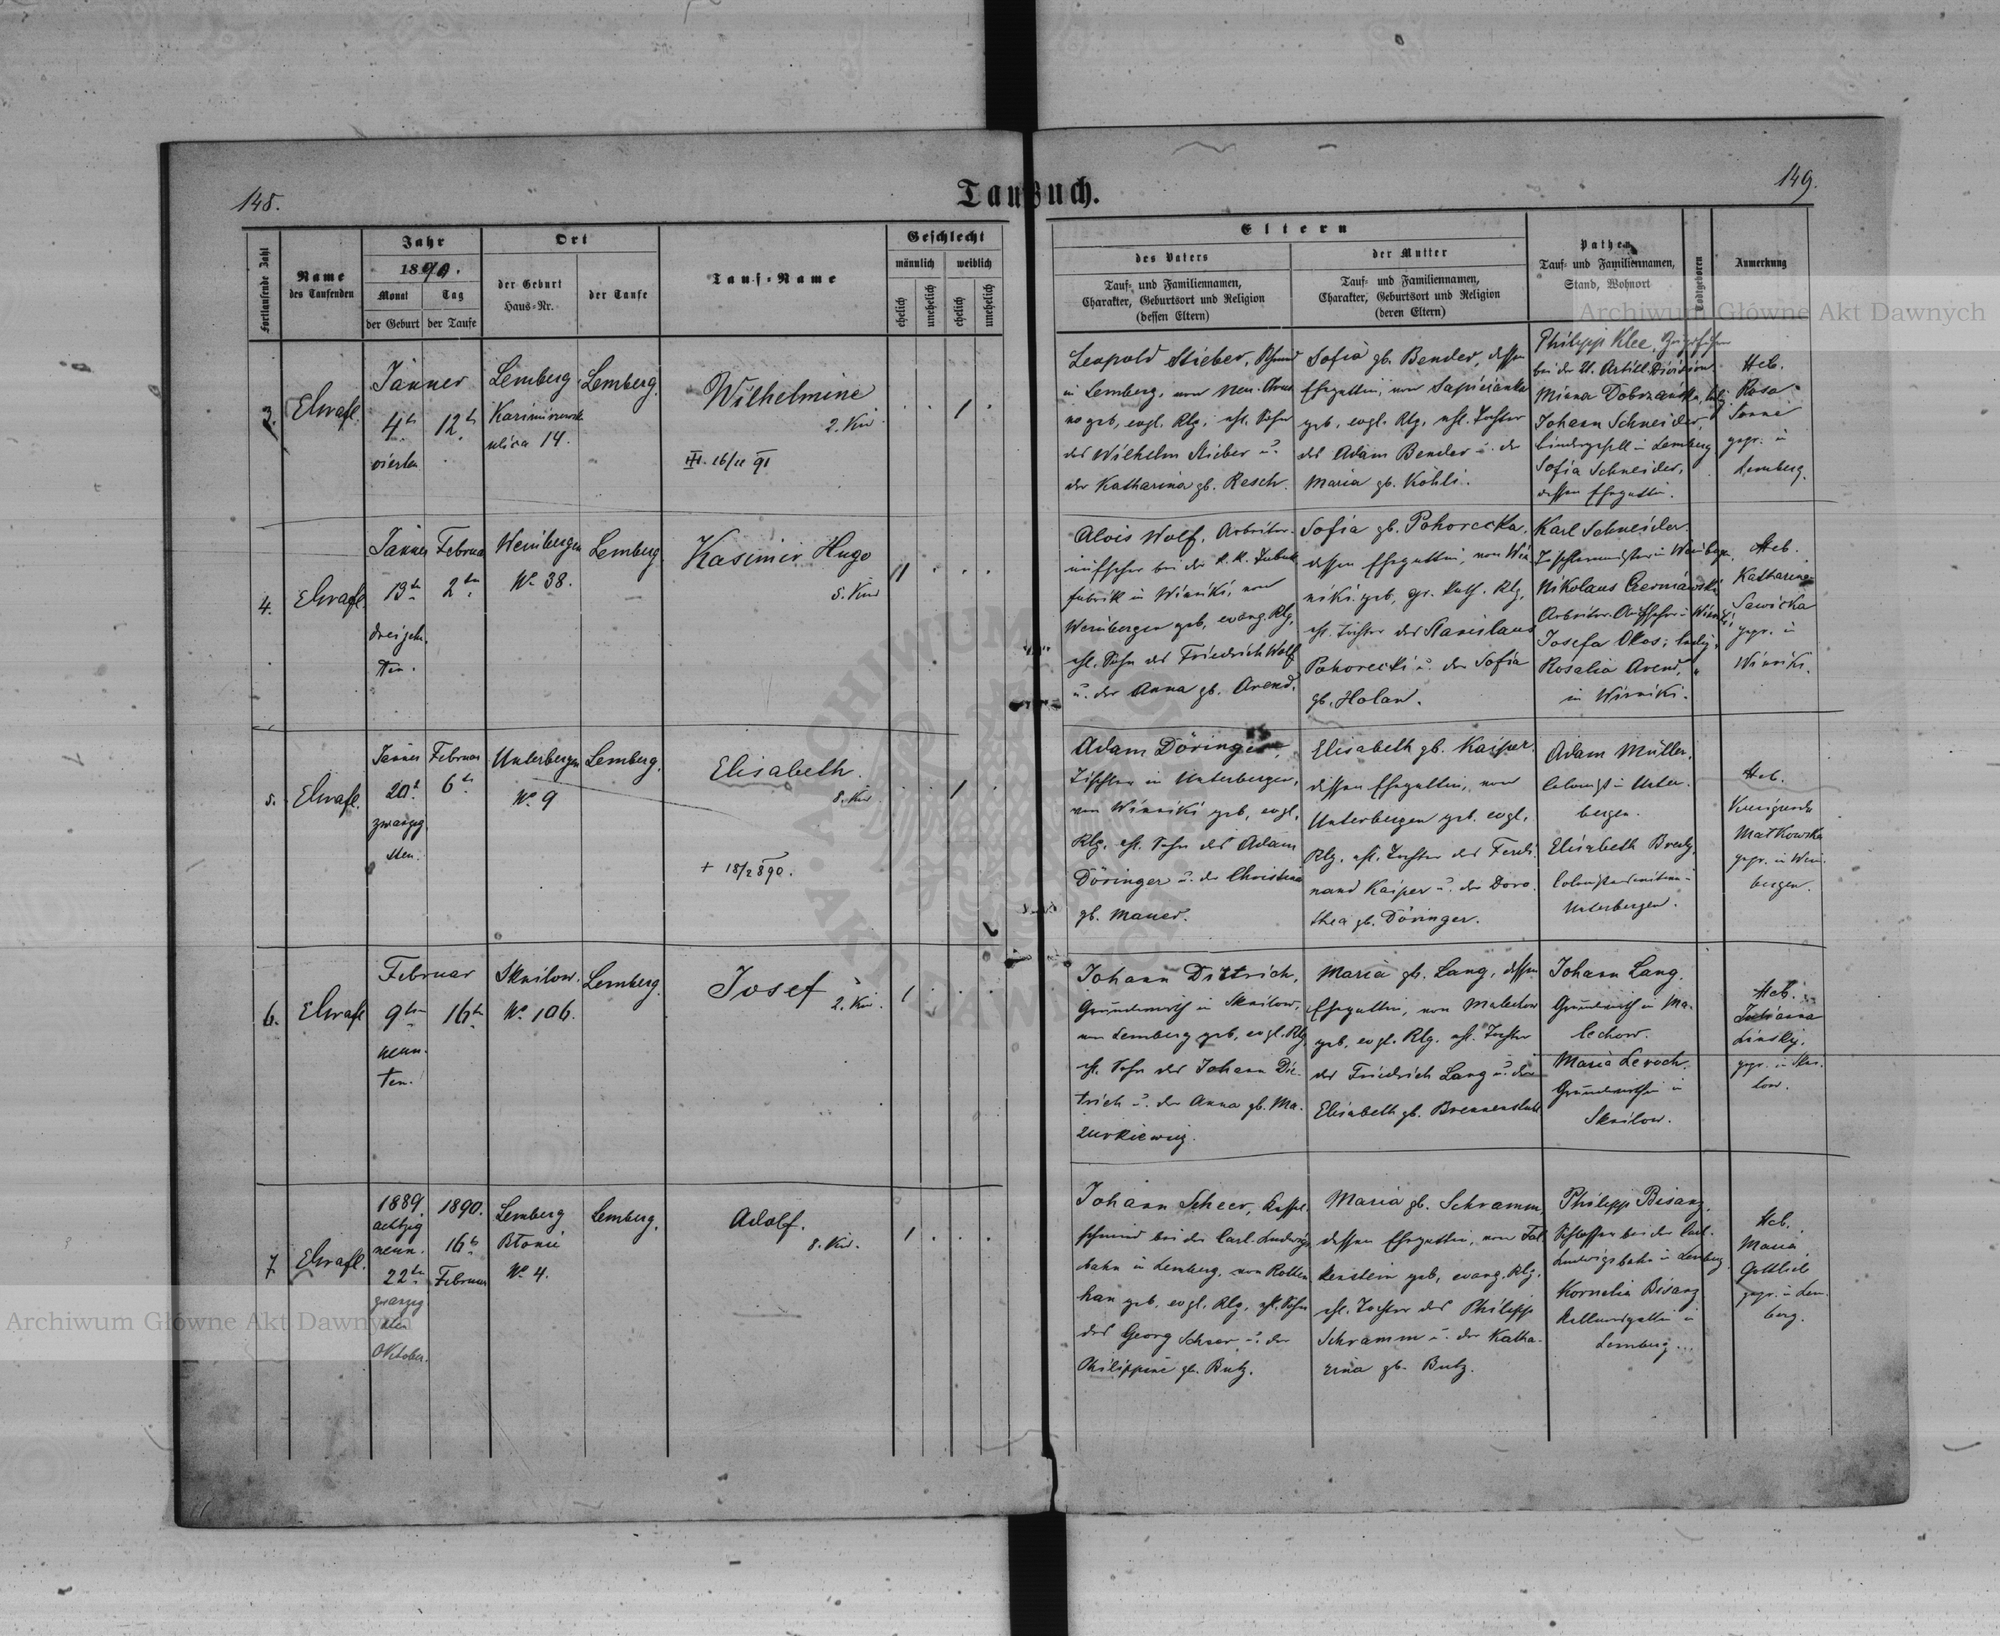 148.
Taufbuch.
149.
Fortlaufende Zahl
Name
des Taufenden
Jahr
1890.
Monat
Tag
der Geburt
der Taufe
Ort
der Geburt
Haus-Nr.
der Taufe
Tauf-Name
Geschlecht
männlich
weiblich
ehelich
unehelich
ehelich
unehelich
Eltern
des Vaters
Tauf- und Familiennamen,
Charakter, Geburtsort und Religion
(dessen Eltern)
der Mutter
Tauf- und Familiennamen,
Charakter, Geburtsort und Religion
(deren Eltern)
Pathen
Tauf- und Familiennamen,
Stand, Wohnort
Todtgeboren
Anmerkung
3.
Jänner
4t
12t
vierten
Lemberg
ulica 14.
Lemberg.
Wilhelmine
2. Kind
16/11 91
1
Leopold Stieber,
in Lemberg, von
geb, evgl. Rlg, ehl. Sohn
des Wilhelm Stieber u.
der Katharina gb. Resch.
Sofia gb. Bender, dessen
Ehegattin, von Sapieżanka
geb, evgl. Rlg, ehl. Tochter
des Adam Bender u. der
Maria gb. Köhli.
Philipp Klee,
bei der 11. Artill. Division
Minna Dobrzańska,
Johann Schneider,
in Lemberg
Sofia Schneider,
dessen Ehegattin.
Heb.
Rosa
gepr. in
Lemberg.
4.
Jänner
13t
dreizehn
ten.
Februar
2ten
Weinbergen
No 38.
Lemberg.
Kasimir Hugo
5. Kind
Alois Wolf, Arbeiter-
aufseher bei der k. k. Tabak
fabrik in Winniki, von
Weinbergen geb, evang. Rlg,
ehl. Sohn des Friedrich Wolf
u. der Anna gb. Arend.
Sofia gb. Pohorecka,
dessen Ehegattin, von Win
niki geb, gr. kath. Rlg,
ehl. Tochter des Stanislaus
Pohorecki u. der Sofia
gb. Holan.
Karl Schneider
Tischlermeister in Weinbergen.
Nikolaus Czerniawski
Arbeiter-Aufseher in Winniki,
Josefa Okos, ledig,
Rosalia Arend, "
in Winniki.
Heb.
Katharina
Sawicka
gepr. in
Winniki.
5.
Jänner
20t
zwanzig
sten.
Februar
6t
Unterbergen
No 9
Lemberg.
Elisabeth.
8. Kind
+ 18/2 890.
1
Adam Döringer,
Tischler in Unterbergen,
von Winniki geb, evgl.
Rlg, ehl. Sohn des Adam
Döringer u. der Christina
gb. Mauer.
Elisabeth gb. Kaiper
dessen Ehegattin, von
Unterbergen geb. evgl.
Rlg, ehl. Tochter des Ferdi
nand Kaiper u. der Doro
thea gb. Döringer.
Adam Müller,
Colonist in Unter
bergen.
Elisabeth
Unterbergen.
Heb.
Kunigunde
Małkowska
gepr. in Wein
bergen.
6.
Februar
9ten
16ten
neun-
ten.
Sknilow.
No 106.
Lemberg.
Josef
2. Kind.
1
Johann Dittrich,
Grundwirth in Sknilow,
von Lemberg geb, evgl. Rlg,
ehl. Sohn des Johann Dit
trich u. der Anna gb. Ma-
zurkiewicz.
Maria gb. Lang, dessen
Ehegattin, von Malechow
geb, evgl. Rlg. ehl. Tochter
des Friedrich Lang u. der
Elisabeth gb.
Johann Lang,
Grundwirth in Ma-
lechow.
Maria
Grundwirthin in
Sknilow.
Heb.
Julianna
gepr. in Skni
low.
7.
1889.
achtzig
neun.
22ten
zwanzig
October.
1890.
16t
Februar
Lemberg
Błonie
No 4.
Lemberg.
Adolf.
8. Kind.
1
Johann Scheer, Kupfer
schmied bei der Carl-Ludwigs
bahn in Lemberg, von Rotten
han geb, evgl. Rlg, ehl. Sohn
des Georg Scheer u. der
Philippine gb. Butz.
Maria gb. Schramm,
dessen Ehegattin, von Fal
kenstein geb, evang. Rlg,
ehl. Tochter des Philipp
Schramm u. der Katha-
rina gb. Butz.
Philipp Bisanz,
Schlosser bei der Carl-
Ludwigsbahn in Lemberg.
Kornelia Bisanz
Lemberg.
Heb.
Maria
Gottlieb
gepr. in Lem
berg.
Archiwum Główne Akt Dawnych
Archiwum Główne Akt Dawnych